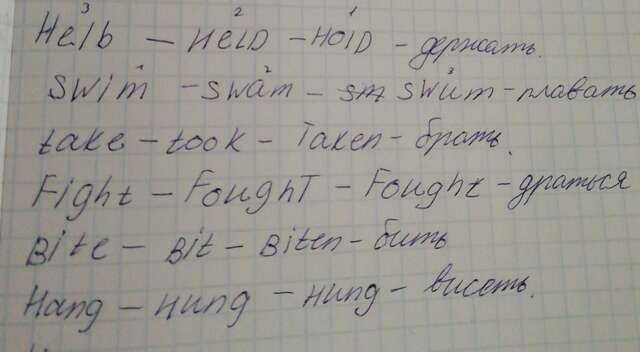 Helb - HelD - HolD - держать.
swim - swam - swum - плавать
take - took - Taken - брать.
Fight - FoughT - Fought - драться
Bite - Bit - Biten - бить
Hang - Hung - Hung - висеть.